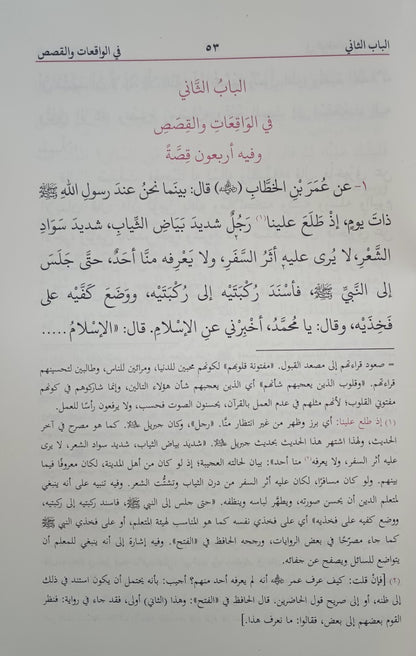 الباب الثاني ٥٣ في الواقعات والقصص
البابُ الثَّاني
في الوَاقِعَاتِ والقِصَصِ
وفيه أربعون قِصَّةً
١- عن عُمَرَ بْنِ الخَطَّابِ (رضي الله عنه) قال: بينَما نحنُ عندَ رسولِ اللهِ ﷺ
ذاتَ يومٍ، إذْ طَلَعَ علينا(١) رَجُلٌ شديدُ بَيَاضِ الثِّيابِ، شديدُ سَوَادِ
الشَّعْرِ، لا يُرى عليه أثَرُ السَّفَرِ، ولا يَعْرِفه منَّا أحَدٌ، حتَّى جَلَسَ
إلى النَّبيِّ ﷺ، فأسْنَدَ رُكْبَتَيْه إلى رُكْبَتَيْه، ووَضَعَ كَفَّيْه على
فَخِذَيْه، وقال: يا مُحَمَّدُ، أخْبِرْني عنِ الإسْلامِ. قال: «الإسْلامُ .....
= صعود قراءتهم إلى مصعد القبول. «مفتونة قلوبهم» لكونهم محبين للدنيا، ومرائين للناس، وطالبين لتحسينهم
قراءتهم. «وقلوب الذين يعجبهم شأنهم» أي الذين يعجبهم شأن هؤلاء التالين، وإنما شاركوهم في كونهم
مفتوني القلوب؛ لأنهم مثلهم في عدم العمل بالقرآن، يحسنون الصوت فحسب، ولا يرفعون رأسًا للعمل.
(١) إذ طلع علينا: أي برز وظهر من غير انتظار منَّا. «رجل»، وكان جبريل ﷺ. كما هو مصرح في آخر
الحديث، ولهذا اشتهر هذا الحديث بحديث جبريل ﷺ. «شديد بياض الثياب، شديد سواد الشعر، لا يرى
عليه أثر السفر، ولا يعرفه(٢) منا أحد»: بيان لحالته العجيبة؛ إذ لو كان من أهل المدينة، لكان معروفًا فيما
بينهم. ولو كان مسافرًا، لكان عليه أثر السفر من درن الثياب وتشعُّث الشعر. وفيه تنبيه على أنه ينبغي
لمتعلم الدين أن يحسن صورته، ويطهِّر لباسه وينظفه. «حتى جلس إلى النبي ﷺ، فأسند ركبتيه إلى ركبتيه،
ووضع كفيه على فخذيه» أي على فخذي نفسه كما هو المناسب لهيئة المتعلم، أو على فخذي النبي ﷺ
كما جاء مصرّحًا في بعض الروايات، ورجحه الحافظ في «الفتح». وفيه إشارة إلى أنه ينبغي للمعلم أن
يتواضع للسائل ويصفح عن جفائه.
(٢) [فإنْ قلت: كيف عرف عمر رضي الله عنه أنه لم يعرفه أحد منهم؟ أجيب: بأنه يحتمل أن يكون استند في ذلك
إلى ظنه، أو إلى صريح قول الحاضرين. قال الحافظ في «الفتح»: وهذا (الثاني) أولى، فقد جاء في رواية: فنظر
القوم بعضهم إلى بعض، فقالوا: ما نعرف هذا.]